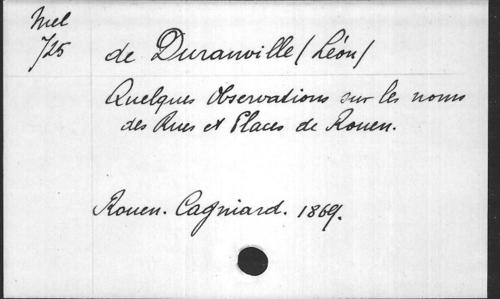 Mel
725
de Duranville (Léon)
Quelques Observations sur les noms
des Rues et Places de Rouen.
Rouen. Cagniard. 1869.